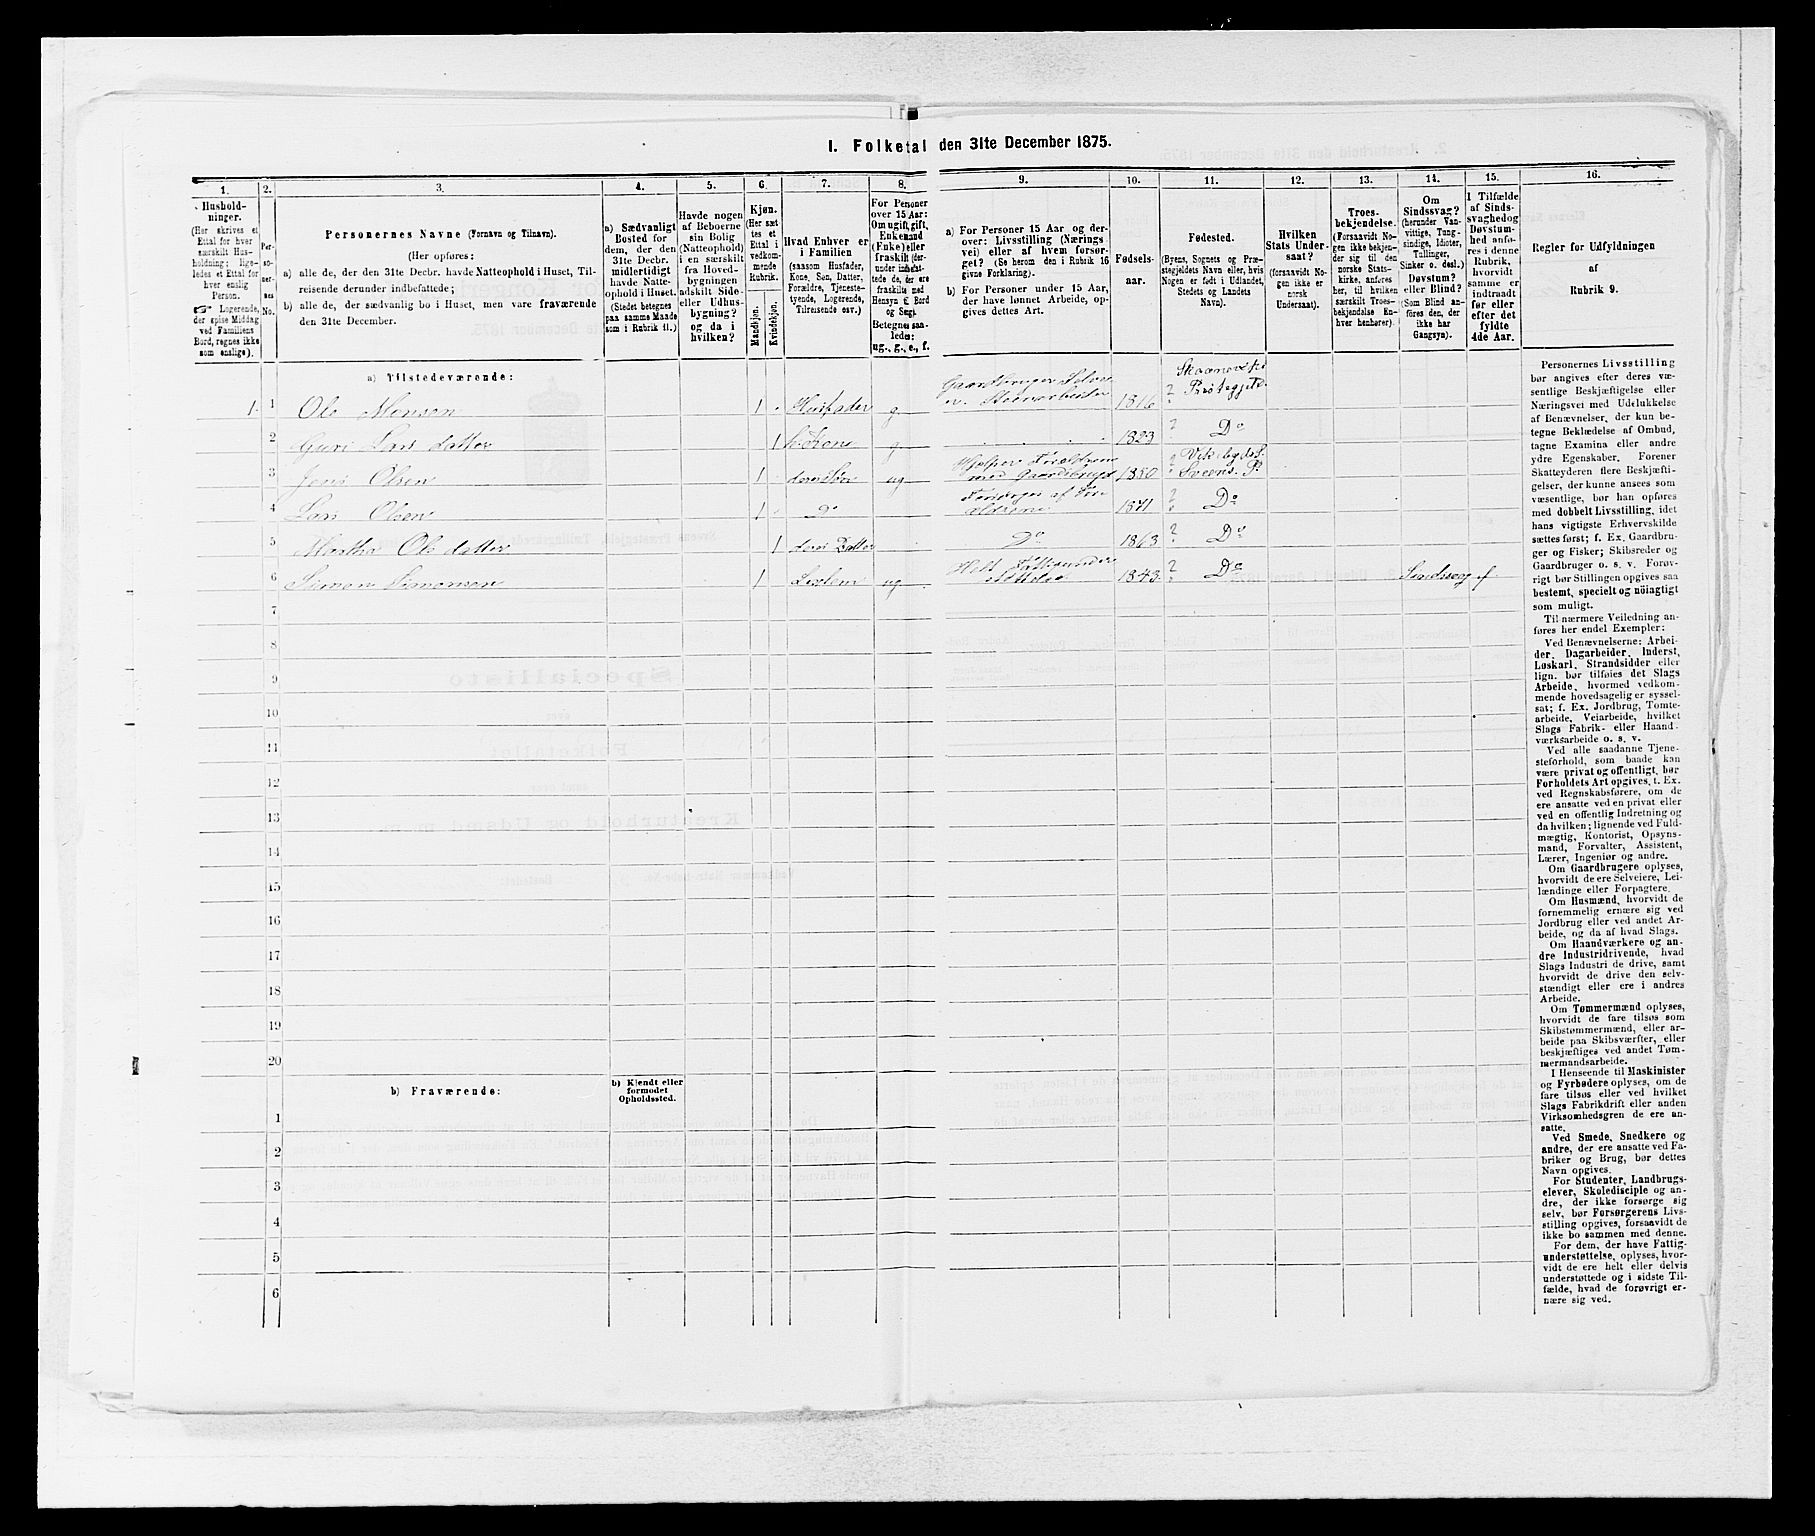 1. Folketal den 31te December 1875.
1.
2.
3.
4.
5.
6.
7.
8.
9.
10.
11.
12.
13.
14.
15.
16.
Hushold-
ninger.
(Her skrives et
Ettal for hver
særskilt Hus-
holdning; lige-
ledes et Ettal for
hver enslig
Person.
☞ Logerende,
der spise Middag
ved Familiens
Bord, regnes ikke
som enslige).
Per-
so-
ner-
nes
No.
Personernes Navne (Fornavn og Tilnavn).
(Her opføres:
a) alle de, der den 31te Decbr. havde Natteophold i Huset, Til-
reisende derunder indbefattede;
b) alle de, der sædvanlig bo i Huset, men vare fraværende
den 31te December.
a) Sædvanligt
Bosted for
dem, der den
31te Decbr.
midlertidigt
havde Natte-
ophold i Huset.
(Stedet betegnes
paa samme Maade
som i Rubrik 11.)
Havde nogen
af Beboerne
sin Bolig
(Natteophold)
i en særskilt
fra Hoved-
bygningen
adskilt Side-
eller Udhus-
bygning?
og da i
hvilken?
Kjøn.
(Her sæt-
tes et
Ettal i
vedkom-
mende
Rubrik.
Mandkjøn.
Kvindekjøn.
Hvad Enhver er
i Familien
(saasom Husfader,
Kone, Søn, Datter,
Forældre, Tjeneste-
tyende, Logerende,
Tilreisende osv.)
For Personer
over 15 Aar:
Om ugift, gift,
Enkemand
(Enke) eller
fraskilt (der-
under indbefat-
tede de, der ere
fraskilte med
Hensyn til Bord
og Seng).
Betegnes saa-
ledes:
ug., g., e., f.
a) For Personer 15 Aar og der-
over: Livsstilling (Nærings-
vei) eller af hvem forsør-
get? (Se herom den i Rubrik 16
givne Forklaring).
b) For Personer under 15 Aar,
der have lønnet Arbeide, op-
gives dettes Art.
Fødsels-
aar.
Fødested.
(Byens, Sognets og Præ-
stegjeldets Navn eller, hvis
Nogen er født i Udlandet,
Stedets og Landets
Navn).
Hvilken
Stats Under-
saat?
(forsaavidt No-
gen ikke er
norsk
Undersaat).
Troes-
bekjendelse.
(Forsaavidt No-
gen ikke bekjen-
der sig til den
norske Stats-
kirke, anføres
her, til hvilken
særskilt Troes-
bekjendelse En-
hver henhører).
Om
Sindssvag?
(herunder Van-
vittige, Tung-
sindige, Idioter,
Tullinger,
Sinker o. desl.)
Døvstum?
eller Blind?
(Som Blind an-
føres den, der
ikke har
Gangsyn).
I Tilfælde
af Sinds-
svaghed og
Døvstum-
hed anfø-
res i denne
Rubrik,
hvorvidt
samme er
indtraadt
før eller
efter det
fyldte
4de Aar.
Regler for Udfyldningen
af
Rubrik 9.
a) Tilstedeværende:
1. 1 Ole Monsen 1 Husfader g Gaardbruger Selveier 1816 ? Skaanevik Præstegjeld
2 Guri Lars datter 1 h. Kone g 1823 ? Do
3 Jens Olsen 1 deres Søn ug Hjelper Forældrene med Gaardsbruget 1850 ? Vikebygds S. Sveens P.
4 Lars Olsen 1 Do Forsørges af For ældrene 1871 ? Do
5 Martha Ols datter 1 deres Datter Do 1863 ? Do
6 Simon Simonsen 1 ug 1843 ? Do Sindssvag ef
7
8
9
10
11
12
13
14
15
16
17
18
19
20
b) Fraværende:
b) Kjendt eller
formodet
Opholdssted.
1
2
3
4
5
6
Personernes Livsstilling
bør angives efter deres væ-
sentlige Beskjæftigelse eller
Næringsvei med Udelukkelse
af Benævnelser, der kun be-
tegne Beklædelse af Ombud,
tagne Examina eller andre
ydre Egenskaber. Forener
Skatteyderen flere Beskjæfti-
gelser, der kunne ansees som
væsentlige, bør han opføres
med dobbelt Livsstilling, idet
hans vigtigste Erhvervskilde
sættes først; f. Ex. Gaardbru-
ger og Fisker; Skibsreder og
Gaardbruger o. s. v. Forøv-
rigt bør Stillingen opgives saa
bestemt, specielt og nöiagtig
som muligt.
Til nærmere Veiledning an-
føres her endel Exempler:
Ved Benævnelserne: Arbei-
der, Dagarbeider, Inderst,
Løskarl, Strandsidder eller
lign. bør tilføies det Slags
Arbeide, hvormed vedkom-
mende hovedsagelig er syssel-
sat; f. Ex. Jordbrug, Tomte-
arbeide, Veiarbeide, hvilket
Slags Fabrik- eller Haand-
værksarbeide o. s. v.
Ved alle saadanne Tjene-
steforhold, som baade kan
være privat og offentligt, bør
Forholdets Art opgives, t. Ex.
ved Regnskabsførere, om de
ere ansatte ved en privat eller
ved en offentlig Indretning og
da hvilken; lignende ved Fuld-
mægtig, Kontorist, Opsyns-
mand, Forvalter, Assistent,
Lærer, Ingeniør og andre.
Om Gaardbrugere oplyses,
hvorvidt de ere Selveiere, Lei-
lændinge eller Forpagtere.
Om Husmænd, hvorvidt de
fornemmelig ernære sig ved
Jordbrug eller ved andet Ar-
beide, og da af hvad Slags.
Om Haandværkere og an-
dre Industridrivende, hvad
Slags Industri de drive, samt
hvorvidt de drive den selv-
stændigt eller ere i andres
Arbeide.
Om Tømmermænd oplyses,
hvorvidt de fare tilsøs som
Skibstømmermænd, eller ar-
beide paa Skibsværfter, eller
beskjæftiges ved andet Tøm-
mermandsarbeide.
I Henseende til Maskinister
og Fyrbødere oplyses, om de
fare tilsøs eller ved hvilket
Slags Fabrikdrift eller anden
Virksomhedsgren de ere an-
satte.
Ved Smede, Snedkere og
andre, der ere ansatte ved Fa-
briker og Brug, bør dettes
Navn opgives.
For Studenter, Landbrugs-
elever, Skoledisciple og an-
dre, der ikke forsørge sig
selv, bør Forsørgerens Livs-
stilling opgives, forsaavidt de
ikke bo sammen med denne.
For dem, der have Fattig-
understøttelse, oplyses, hvor-
vidt de ere helt eller delvis
understøttede og i sidste Til-
fælde, hvad de forøvrigt er-
nære sig ved.